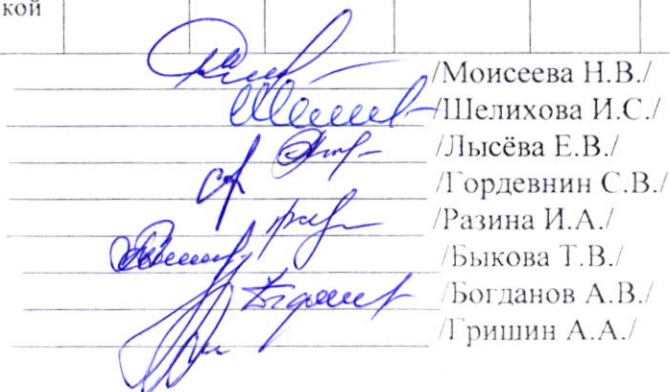 кой
/Моисеева Н.В./
/Шелихова И.С./
/Лысёва Е.В./
/Гордевнин С.В./
/Разина И.А./
/Быкова Т.В./
/Богданов А.В./
/Гришин А.А./